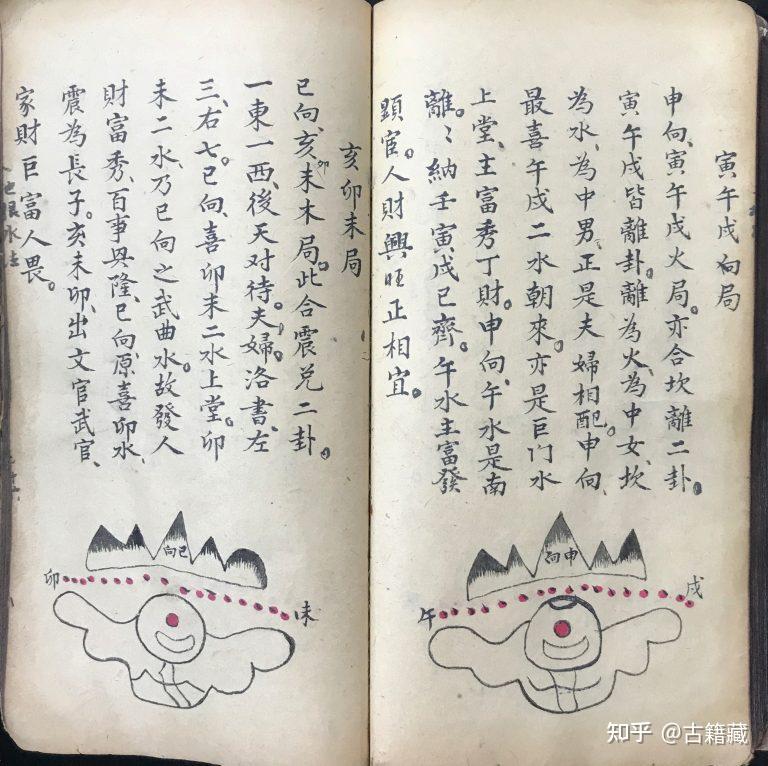 寅午戌向局
申向、寅午戌火局。亦合坎離二卦。
寅午戌皆離卦。離為火、為中女、坎
為水、為中男、正是夫婦相配。申向、
最喜午戌二水朝來、亦是巨门水
上堂、主富秀丁財。申向、午水是南
離。離〻納壬寅戌已齊。午水主富發
顕宦。人財興旺正相宜。
申向
午
戌
亥卯未局
巳向、亥卯未木局。此合震兑二卦。
一東一西、後天对待。夫婦。洛書、左
三、右七。巳向、喜卯未二水上堂。卯
未二水、乃巳向之武曲水。故發人
財富秀、百事興隆、巳向、原喜卯水、
震為長子。亥未卯、出文官武官、
家財巨富人畏。
巳向
卯
未
知乎 @古籍藏